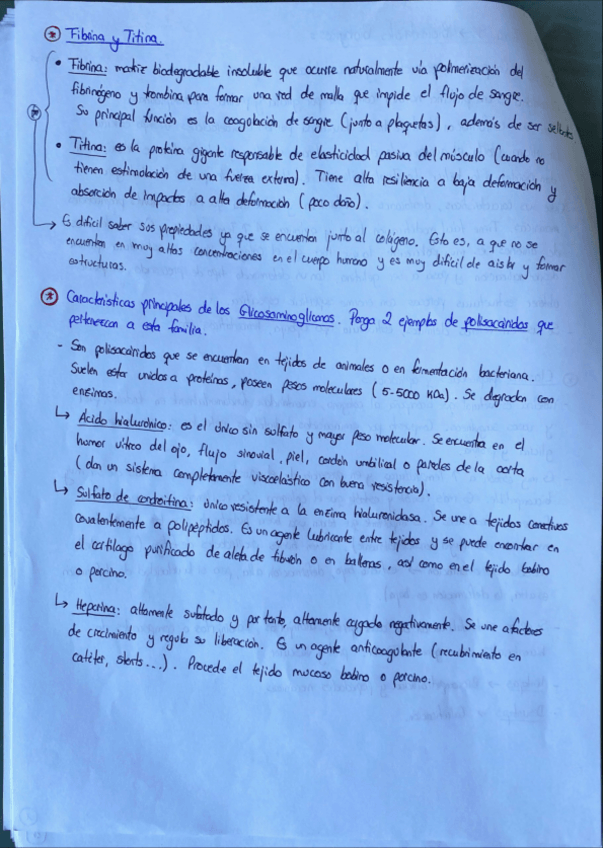 Fibrina y Titina.
• Fibrina: matriz biodegradable insoluble que ocurre naturalmente vía polimerización del
fibrinógeno y trombina para formar una red de malla que impide el flujo de sangre.
Su principal función es la coagulación de sangre (junto a plaquetas), además de ser
• Titina: es la proteína gigante responsable de elasticidad pasiva del músculo (cuando no
tienen estimulación de una fuerza externa). Tiene alta resiliencia a baja deformación y
absorción de impactos a alta deformación (poco daño).
→ Es difícil saber sus propiedades ya que se encuentran junto al colágeno. Esto es, a que no se
encuentran en muy altas concentraciones en el cuerpo humano y es muy difícil de aislar y formar
estructuras.
Características principales de los Glicosaminoglicanos. Ponga 2 ejemplos de polisacáridos que
pertenezcan a esta familia.
- Son polisacáridos que se encuentran en tejidos de animales o en fermentación bacteriana.
Suelen estar unidos a proteínas, poseen pesos moleculares (5-5000 KDa). Se degradan con
enzimas.
↳ Ácido hialurónico: es el único sin sulfato y mayor peso molecular. Se encuentra en el
humor vítreo del ojo, flujo sinovial, piel, cordón umbilical o paredes de la aorta
(dan un sistema completamente viscoelástico con buena resistencia).
↳ Sulfato de condroitina: único resistente a la enzima hialuronidasa. Se une a tejidos conectivos
covalentemente a polipéptidos. Es un agente lubricante entre tejidos y se puede encontrar en
el cartílago purificado de aleta de tiburón o en ballenas, así como en el tejido bobino
o porcino.
↳ Heparina: altamente sulfatado y por tanto, altamente cargado negativamente. Se une a factores
de crecimiento y regula su liberación. Es un agente anticoagulante (recubrimiento en
catéter, stents...). Procede el tejido mucoso bobino o porcino.